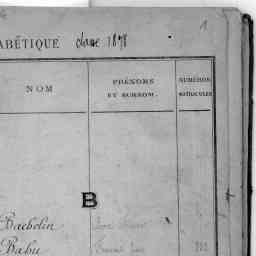 1
ABÉTIQUE classe 1878
NOM
PRÉNOMS
ET SURNOM.
NUMÉROS
MATRICULES
B
Baebolin
Babu